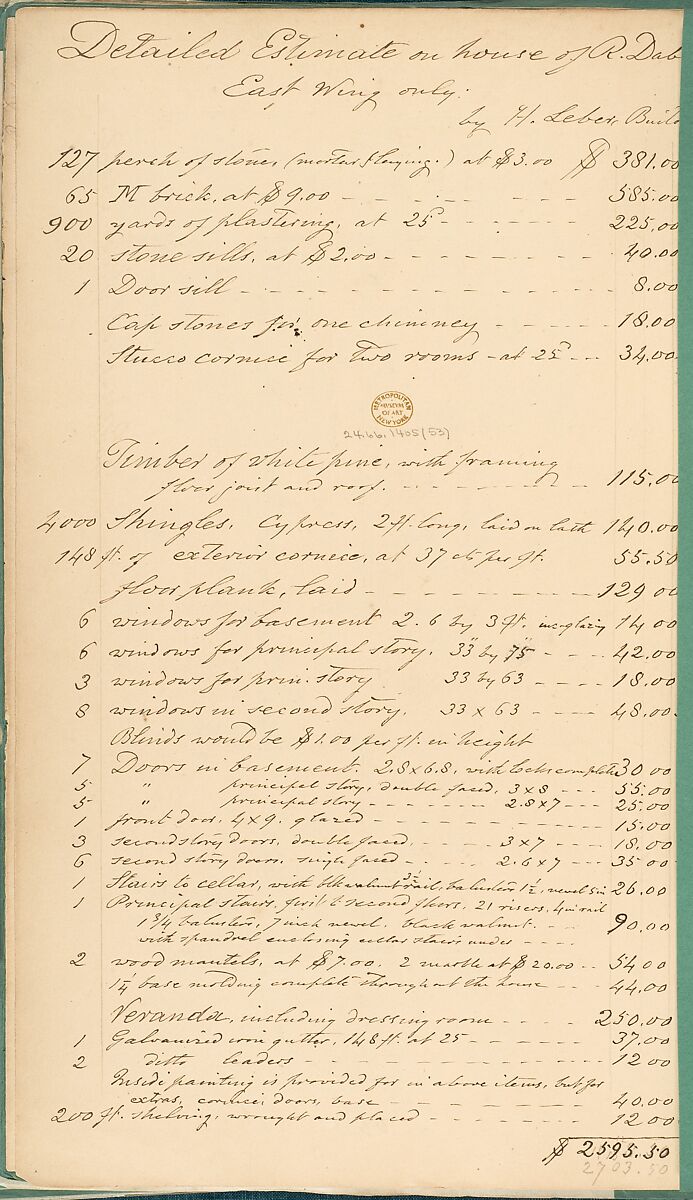 Detailed Estimate on house of R. Dab
East Wing only.
by H. Leber, Build
127 perch of stone, (mortar & laying.) at $3.00 $ 381.00
65 M brick, at $9.00 - - - - - - 585.00
900 yards of plastering, at 25 - - - - - - 225.00
20 stone sills, at $2.00 - - - - - - 40.00
1 Door sill - - - - - - 8.00
Cap stones for one chimney - - - - 18.00
Stucco cornice for two rooms - at 25 - - - 34.00
METROPOLITAN
MUSEUM
OF ART
NEW YORK
24.66.1405(53)
Timber of white pine, with framing
floor joist and roof. - - - - - - 115.00
4000 Shingles, Cypress, 2 ft. long, laid on lath 140.00
148 ft. of exterior cornice, at 37 cts per ft. 55.50
floor plank, laid - - - - - - 129 00
6 windows for basement 2.6 by 3 ft. glazing 14 00
6 windows for principal story. 33" by 75" - - - 42.00
3 windows for prin. story 33 by 63 - - - - 18.00
8 windows in second story. 33 x 63 - - - - 48.00
Blinds would be $1.00 per ft. in height
7 Doors in basement. 2.8 x 6.8, with locks complete 30 00
5 " principal story, double faced, 3 x 8 - - - 55.00
5 " principal story - - - - - 2.8 x 7 - - - 25.00
1 front door, 4 x 9. glazed - - - - - - 15.00
3 second story doors, double faced. - - - - 3 x 7 - - - - 18.00
6 second story doors, single faced - - - - 2.6 x 7 - - - 35 00
1 Stairs to cellar, with blk walnut rail, balusters 1½, newel 5 in 26.00
1 Principal stairs, first & second floors, 21 risers, 4 in rail
1 3/4 balusters, 7 inch newel, black walnut. - - - 90.00
with spandrel enclosing cellar stairs under - - - -
2 wood mantels, at $7.00. 2 marble at $20.00 - - 54 00
1¼ base molding complete throughout the house - - - - 44.00
Veranda, including dressing room - - - - 250.00
1 Galvanized iron gutter, 148 ft. at 25 - - - - - 37.00
2 ditto leaders - - - - - - 12 00
Inside painting is provided for in above items, but for
extras, cornice, doors, base - - - - - - 40.00
200 ft. shelving, wrought and placed - - - - - - 12 00
$ 2595.50
2703.50